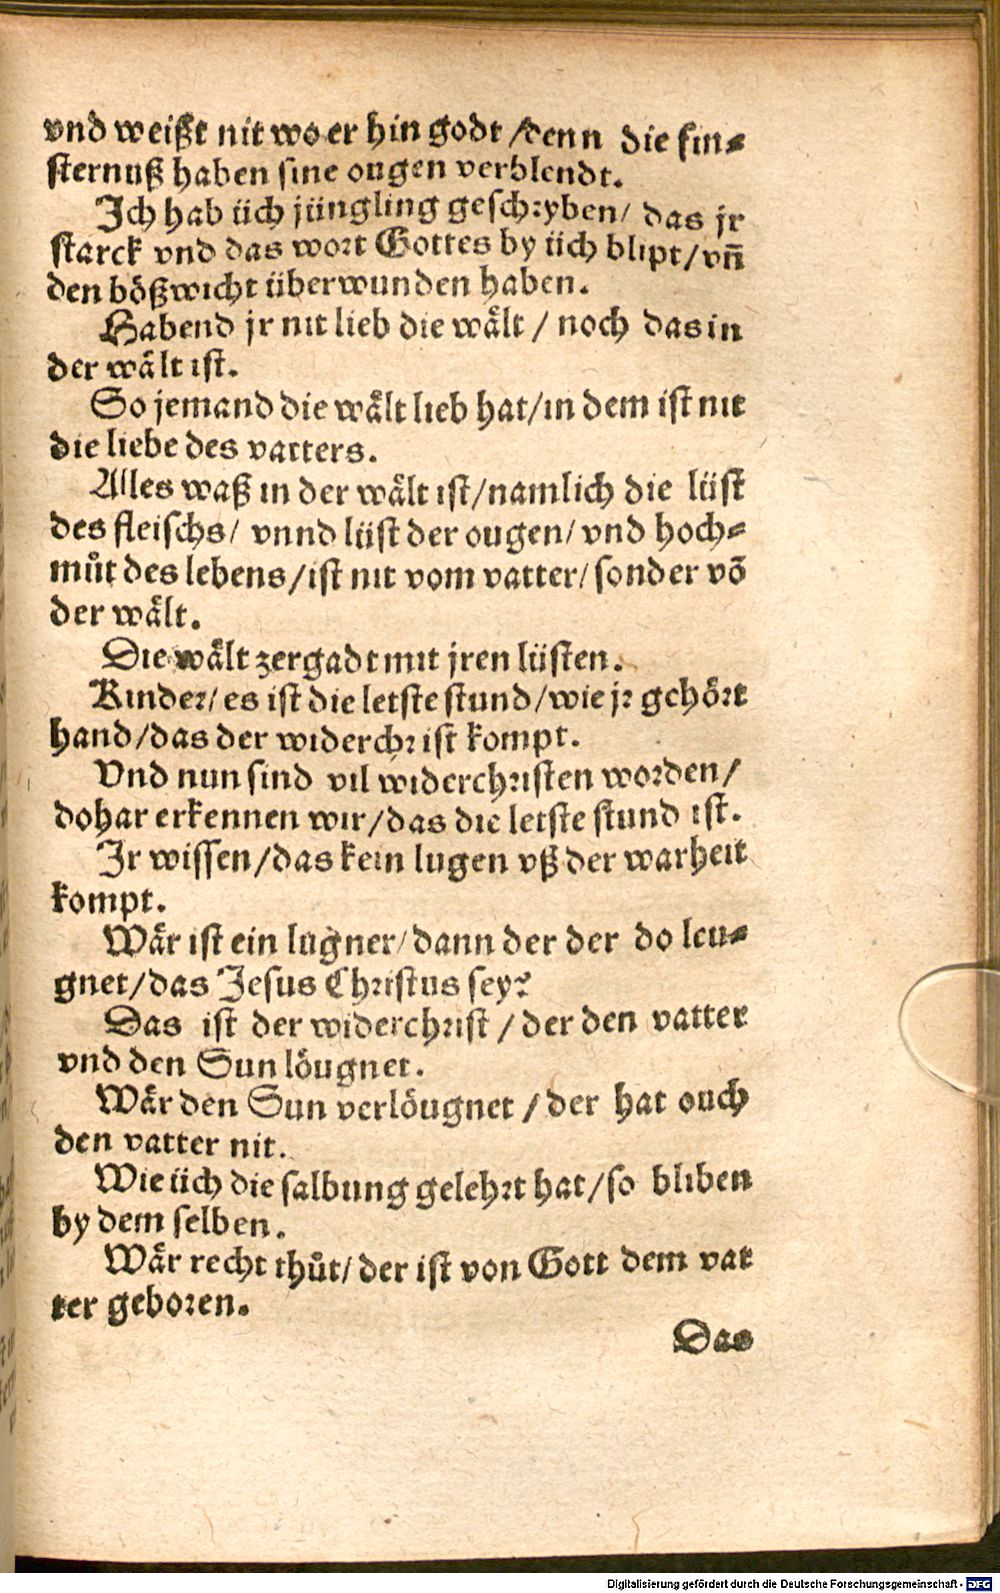 vnd weißt nit wo er hin godt / denn die fin⸗
sternuß haben sine ougen verblendt.
Ich hab üch jüngling geschryben / das jr
starck vnd das wort Gottes by üch blipt / vñ
den bößwicht überwunden haben.
Habend jr nit lieb die wält / noch das in
der wält ist.
So jemand die wält lieb hat / in dem ist nit
die liebe des vatters.
Alles waß in der wält ist / namlich die lüst
des fleischs / vnnd lüst der ougen / vnd hoch⸗
můt des lebens / ist nit vom vatter / sonder võ
der wält.
Die wält zergadt mit jren lüsten.
Kinder / es ist die letste stund / wie jr gehört
hand / das der widerchrist kompt.
Vnd nun sind vil widerchristen worden /
dohar erkennen wir / das die letste stund ist.
Ir wissen / das kein lugen vß der warheit
kompt.
Wår ist ein lugner / dann der der do leu⸗
gnet / das Jesus Christus sey?
Das ist der widerchrist / der den vatter
vnd den Sun löugnet.
Wår den Sun verlöugnet / der hat ouch
den vatter nit.
Wie üch die salbung gelehrt hat / so bliben
by dem selben.
Wår recht thůt / der ist von Gott dem vat
ter geboren.
Das
Digitalisierung gefördert durch die Deutsche Forschungsgemeinschaft - DFG